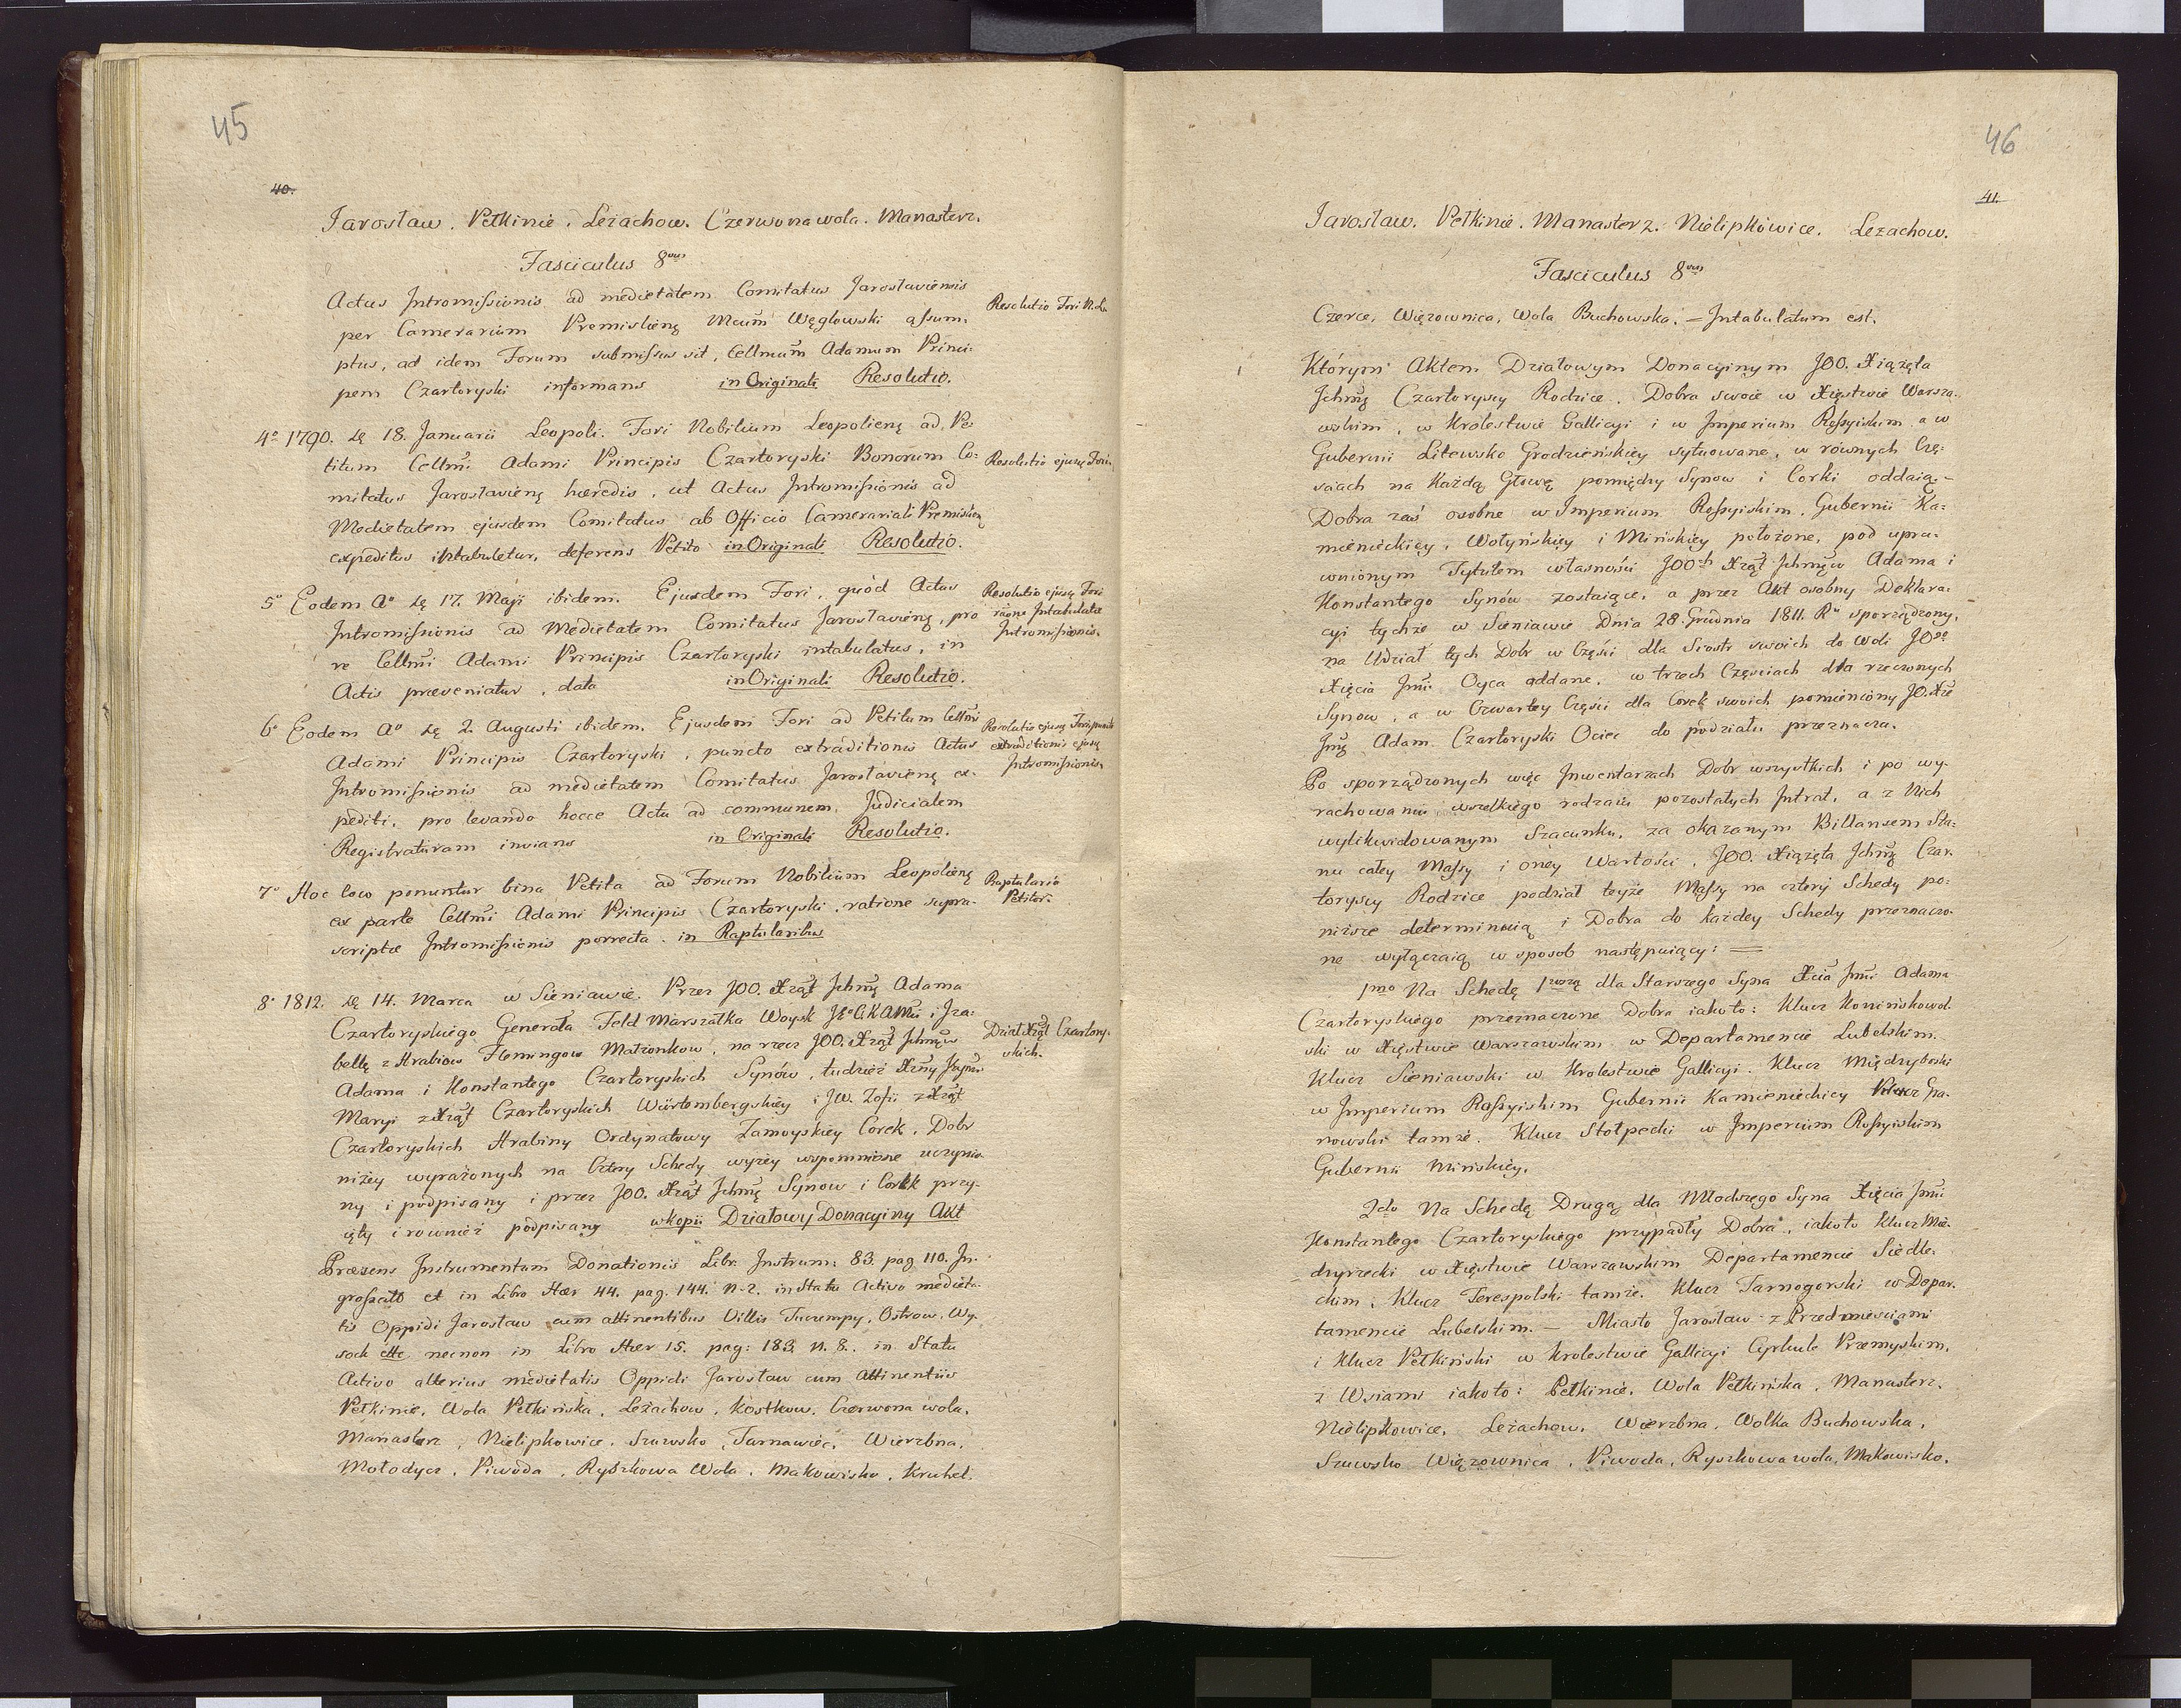 45
40.
Jarosław. Pełkinie. Leżachow. Czerwona wola. Manasterz.
Fasciculus 8vus
Actus Intromissionis ad medietatem Comitatus Jaroslaviensis
Resolutio Fori N. L.
per Camerarium Premislieñ Węglowski assum-
ptus, ad idem Forum submissus sit, Cellmum Adamum Princi-
pem Czartoryski informans in Originali Resolutio.
4o 1790. 18. Januarii Leopoli. Fori Nobilium Leopolieñ ad Pe-
titum Cellmi Adami Principis Czartoryski Bonorum Co-
Resolutio ejusd Fori.
mitatus Jaroslavieñ hæredis, ut Actus Intromissionis ad
Medietatem ejusdem Comitatus ab Officio Camerariali Premislieñ
expeditus intabuletur, deferens Petito in Originali Resolutio.
5o Eodem Ao 17. Maji ibidem. Ejusdem Fori, quòd Actus
Resolutio ejusd Fori
Intromissionis ad Medietatem Comitatus Jaroslavieñ, pro
raõne Intabulatæ
re Cellmi Adami Principis Czartoryski intabulatus, in
Intromissionis.
Actis præveniatur, data in Originali Resolutio.
6o Eodem Ao 2. Augusti ibidem. Ejusdem Fori ad Petitum Cellmi
Resolutio ejusd Fori puncto
Adami Principis Czartoryski, puncto extraditionis Actus
extraditionis ejusd
Intromissionis ad medietatem Comitatus Jaroslavieñ ex-
Intromissionis.
pediti, pro levando hocce Actu ad communem Judicialem
Registraturam invians in Originali Resolutio.
7o Hoc loco ponuntur bina Petita ad Forum Nobilium Leopolieñ
Raptularia
ex parte Cellmi Adami Principis Czartoryski, ratione supra-
Petitor.
scriptæ Intromissionis porrecta. in Raptularibus
8o 1812. 14. Marca w Sieniawie. Przez JOO. Xżąt Ichmę Adama
Czartoryskiego Generała Feld Marszałka Woysk i Iza-
Dział Xżąt Czartory-
bellę z Hrabiow Flemingow Małżonkow, na rzecz JOO. Xżąt Ichmęw
skich.
Adama i Konstantego Czartoryskich Synów, tudzież Xżny
Maryi z Xżąt Czartoryskich Würtembergskiey i JW. Zofii z Xżąt
Czartoryskich Hrabiny Ordynatowy Zamoyskiey Corek. Dobr
niżey wyrażonych na Cztery Schedy wyżey wspomnione uczynio-
ny i podpisany i przez JOO. Xżąt Ichmę Synow i Corek przy-
ięty i rownież podpisany w kopii Działowy Donacyiny Akt
Præsens Instrumentum Donationis Libr. Instrum: 83. pag 110. In-
grossato et in Libro Hær 44. pag. 144. n. 2. in Statu Activo medieta-
tis Oppidi Jarosław cum attinentibus Villis Tuczempy, Ostrow, Wy-
sock etc. necnon in Libro Hær 15. pag: 183 n. 8. in Statu
Activo alterius medietatis Oppidi Jarosław cum Attinentiis
Pełkinie, Wola Pełkińska, Leżachow, Kostkow, Czerwona wola,
Manasterz, Nielipkowice, Szuwsko, Tarnawiec, Wierzbna,
Mołodycz, Piwoda, Ryszkowa Wola, Makowisko, Kruhel.
46
41.
Jarosław. Pełkinie. Manasterz. Nielipkowice. Leżachow.
Fasciculus 8vus
Czerce, Wiązownica, Wola Buchowska. — Intabulatum est.
Którym Aktem Działowym Donacyinym JOO. Xiążęta
Ichmę Czartoryscy Rodzice, Dobra swoie w Xięstwie Warsza-
wskim, w Krolestwie Gallicyi i w Imperium Rossyiskim a w
Gubernii Litewsko Grodzieńskiey sytuowane, w równych Czę-
sciach na Każdą Głowę pomiędzy Synow i Corki oddaią. —
Dobra zaś osobne w Imperium Rossyiskim, Gubernii Ka-
mienieckiey, Wołyńskiey i Mińskiey położone, pod upra-
wnionym Tytułem własności JOOch Xżąt Ichmęw Adama i
Konstantego Synów zostaiące, a przez Akt osobny Deklara-
cyi tychże w Sieniawie Dnia 28. Grudnia 1811. Ru sporządzony,
na Udział tych Dobr w Części dla Siostr swoich do woli JOgo
Xięcia Jmci Oyca oddane, w trzech Częsciach dla rzeczonych
Synow, a w Czwartey Części dla Corek swoich pomieniony JO. Xże
Jmę Adam Czartoryski Ociec do podziału przeznacza.
Po sporządzonych więc Inwentarzach Dobr wszystkich i po wy-
rachowaniu wszelkiego rodzaiu pozostałych Intrat, a z Nich
wylikwidowanym Szacunku, za okazanym Billansem Sta-
nu całey Massy i oney Wartości, JOO. Xiążęta Ichmę Czar-
toryscy Rodzice podział teyże Massy na cztery Schedy po-
niższe determinuią i Dobra do każdey Schedy przeznaczo-
ne wyłączaią w sposob następuiący: —
1mo Na Schedę 1wszą dla Starszego Syna Xcia Jmci Adama
Czartoryskiego przeznaczone Dobra iakoto: Klucz Konińskowol-
ski w Xięstwie Warszawskim w Departamencie Lubelskim.
Klucz Sieniawski w Krolestwie Gallicyi. Klucz Międzyboski
w Imperium Rossyiskim Gubernii Kamienieckiey Klucz Gra-
nowski tamże. Klucz Stołpecki w Imperium Rossyiskim
Gubernii Mińskiey.
2do Na Schedę Drugą dla Młodszego Syna Xięcia Jmci
Konstantego Czartoryskiego przypadły Dobra, iakoto Klucz Mię-
dzyrzecki w Xięstwie Warszawskim Departamencie Siedle-
ckim, Klucz Terespolski tamże. Klucz Tarnogorski w Depar-
tamencie Lubelskim. — Miasto Jarosław z Przedmiesciami
i Klucz Pełkiński w Krolestwie Gallicyi Cyrkule Przemyskim,
z Wsiami iakoto: Pełkinie, Wola Pełkińska, Manasterz,
Nielipkowice, Leżachow, Wierzbna, Wolka Buchowska,
Szuwsko Wiązownica, Piwoda, Ryszkowa wola, Makowisko.